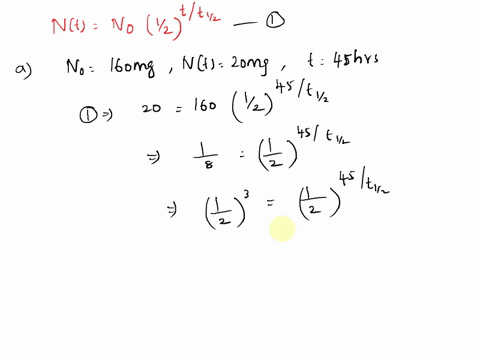 N(t) = N0 (1/2)^t/t1/2 — ①
a) N0 = 160mg, N(t) = 20mg, t = 45hrs
① ⇒ 20 = 160 (1/2)^45/t1/2
⇒ 1/8 = (1/2)^45/t1/2
⇒ (1/2)^3 = (1/2)^45/t1/2